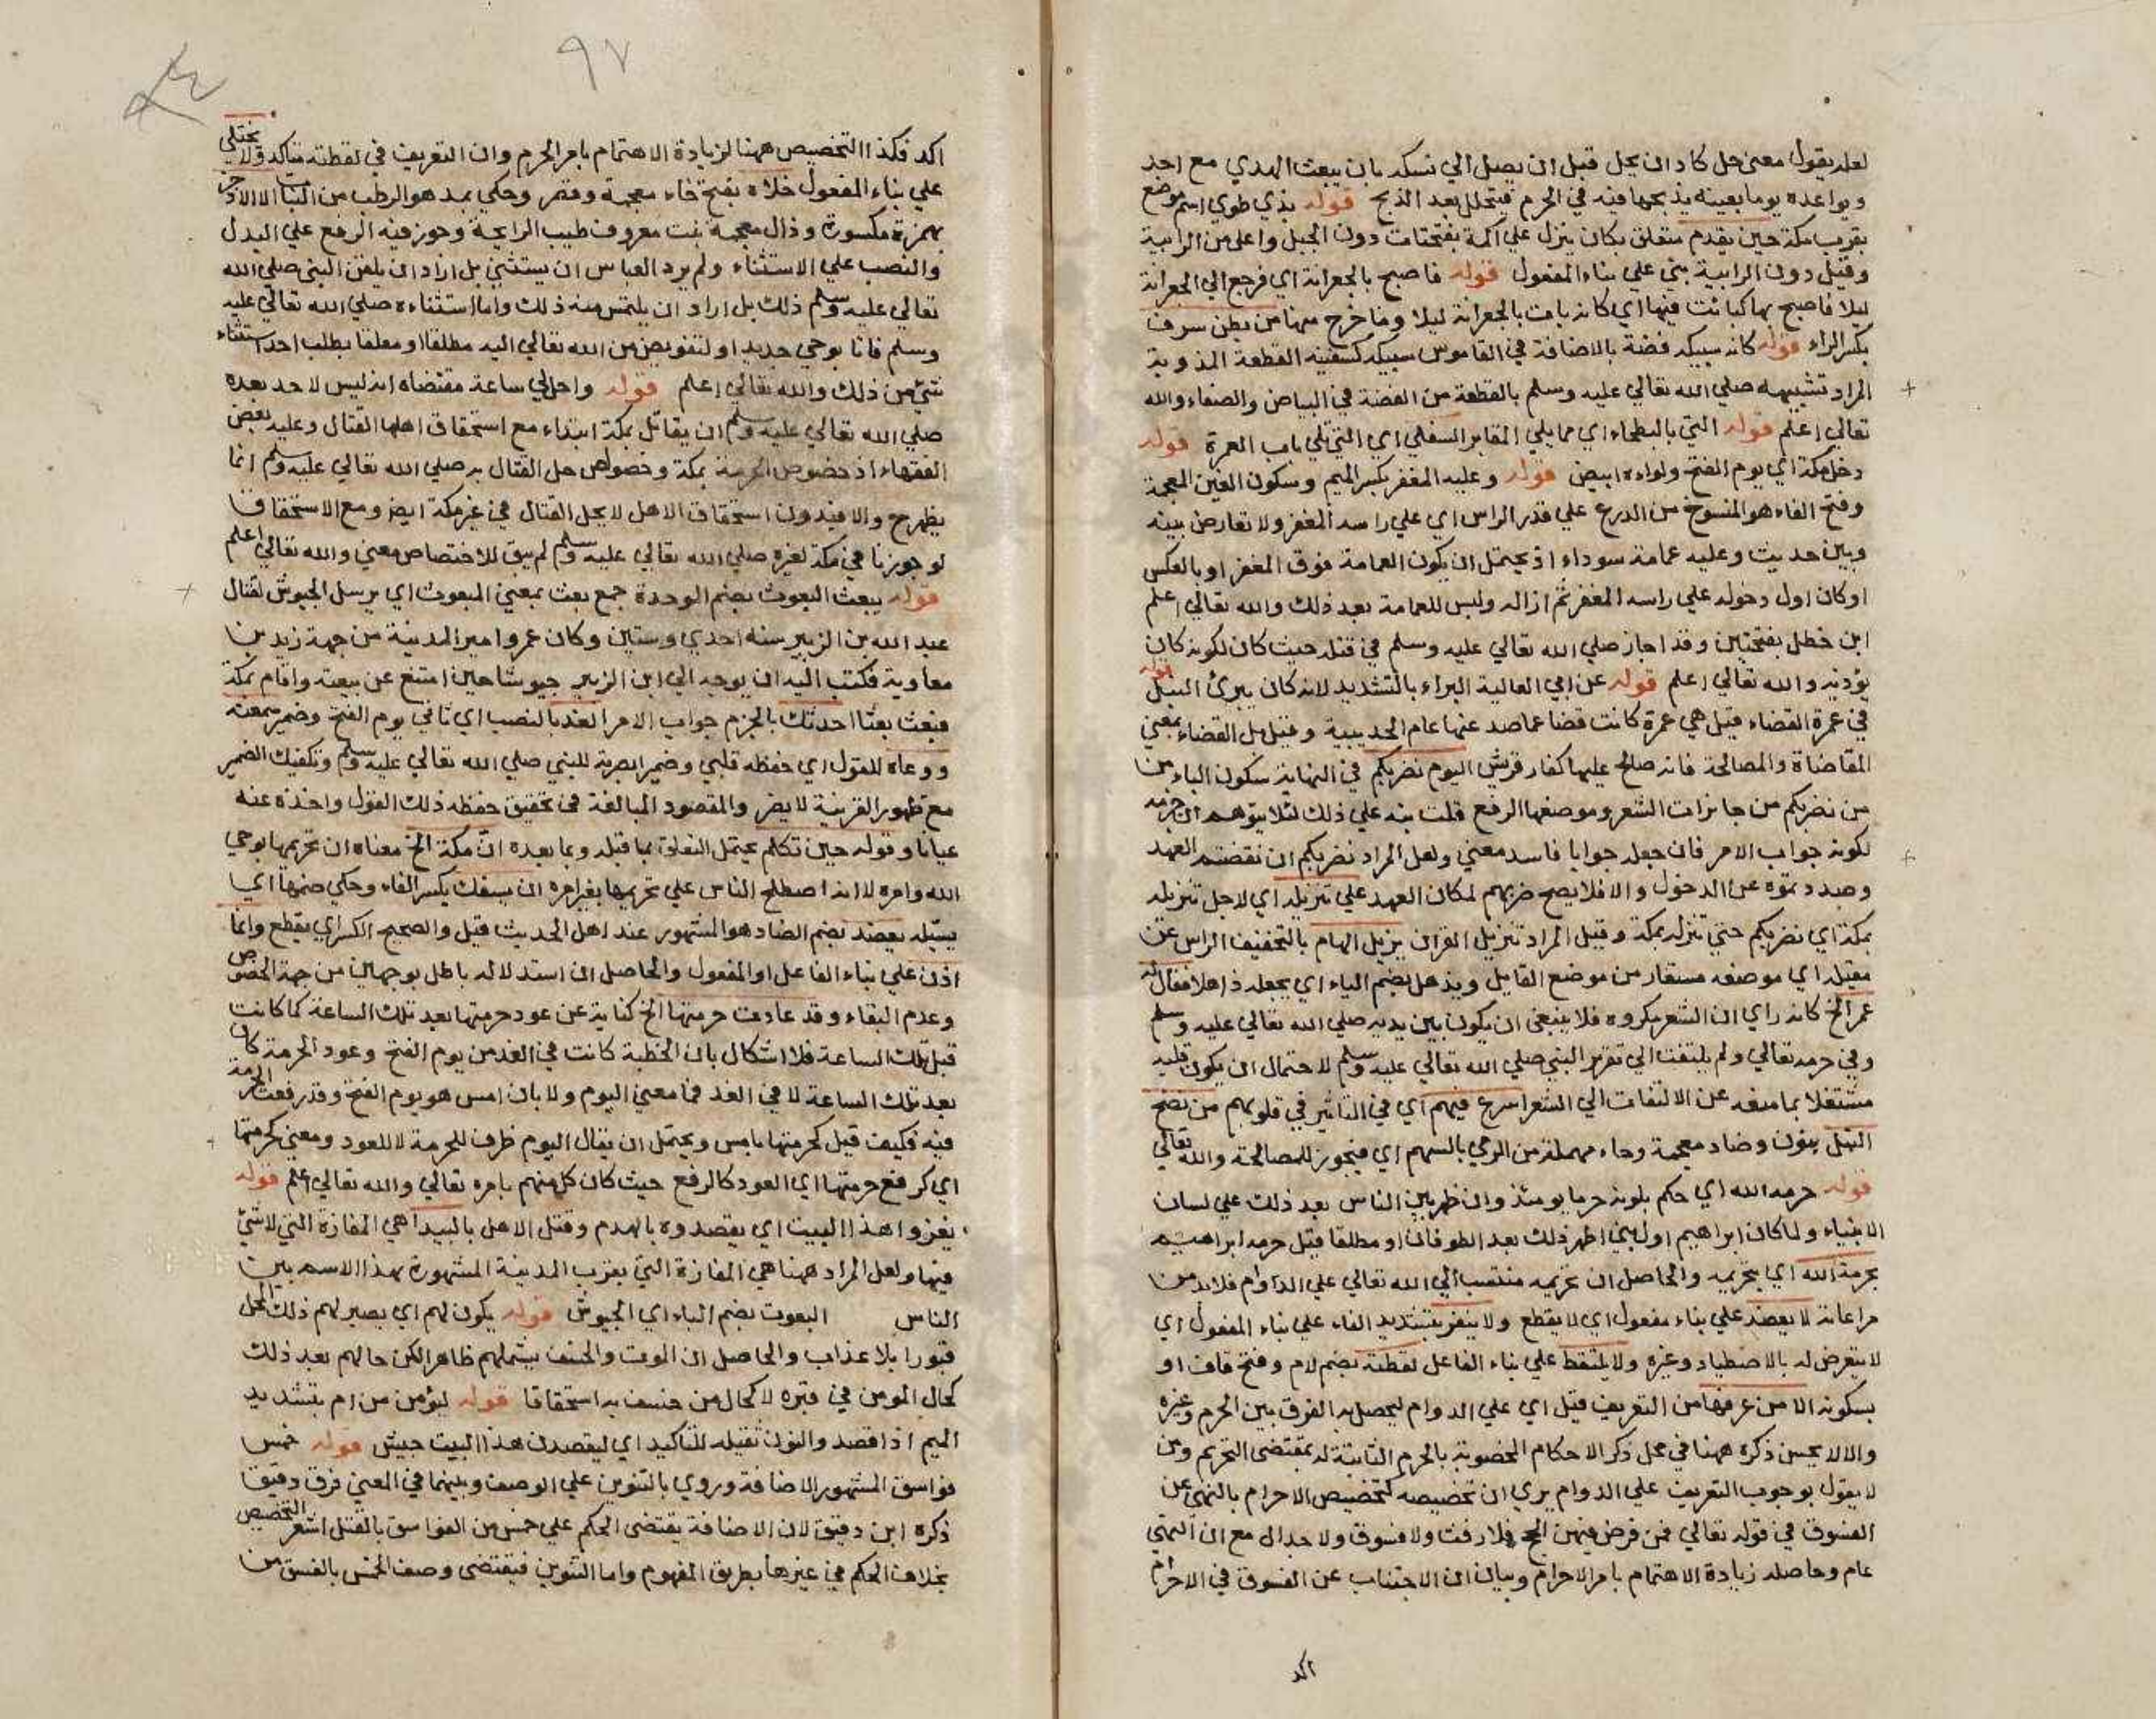 لعله يقول معنى حل كاد ان يحل قبل ان يصل الي نسكه بان يبعث الهدي مع احد
ويواعده يوما بعينه يذبحها فيه في الحرم فيتحلل بعد الذبح قوله بذي طوي اسم موضع
بقرب مكة حين يقدم متعلق بكان ينزل علي اكمة بفتحات دون الجبل واعلى من الرابية
وقيل دون الرابية بني علي بناء المفعول قوله فاصبح بالجعرانة اي فرجع الي الجعرانة
ليلا فاصبح بها كبائت فيها اي كانه بات بالجعرانة ليلا وما خرج منها من بطن سرف
بكسر الراء قوله كانه سبيكة فضة بالاضافة في القاموس سبيكة كسفينة القطعة المذوبة
المراد تشبيهه صلي الله تعالي عليه وسلم بالقطعة من الفضة في البياض والصفاء والله
تعالي اعلم قوله التي بالبطحاء اي مما يلي المقابر السفلي اي التي تلي باب العمرة قوله
دخل مكة اي يوم الفتح ولواءه ابيض قوله وعليه المغفر بكسر الميم وسكون الغين المعجمة
وفتح الفاء هو المنسوج من الدرع علي قدر الراس اي علي راسه المغفر ولا تعارض بينه
وبين حديث وعليه عمامة سوداء اذ يحتمل ان يكون العمامة فوق المغفر او بالعكس
او كان اول دخوله علي راسه المغفر ثم ازاله ولبس للعمامة بعد ذلك والله تعالي اعلم
ابن خطل بفتحتين وقد اجاز صلي الله تعالي عليه وسلم في قتله حيث كان لكونه كان
يؤذيه والله تعالي اعلم قوله عن ابي العالية البراء بالتشديد لانه كان يبري النبل قوله
في عمرة القضاء قيل هي عمرة كانت قضا عما صد عنها عام الحديبية وقيل بل القضاء بمعني
المقاضاة والمصالحة فانه صالح عليها كفار قريش اليوم نضربكم في النهاية سكون الباء من
من نضربكم من جائزات الشعر وموضعها الرفع قلت نبه علي ذلك لئلا يتوهم ان جزمه
لكونه جواب الامر فان جعله جوابا فاسد معني ولعل المراد نضربكم ان نقضتم العهد
وصددتموه عن الدخول والا فلا يصح ضربهم لمكان العهد علي تنزيله اي لاجل تنزيله
بمكة اي نضربكم حتي ننزله بمكة وقيل المراد تنزيل القران يزيل الهام بالتخفيف الراس عن
مقيله اي موضعه مستعار من موضع القايل ويذهل بضم الياء اي يجعله ذاهلا فقال له
عمر الخ كانه راي ان الشعر مكروه فلا ينبغي ان يكون بين يديه صلي الله تعالي عليه وسلم
وفي حرمه تعالي ولم يلتفت الي تقرير النبي صلي الله تعالي عليه وسلم لاحتمال ان يكون قلبه
مشتغلا بما منعه عن الالتفات الي الشعر اسرع فيهم اي في التاثير في قلوبهم من نضح
النبل بنون وضاد معجمة وحاء مهملة من الرمي بالسهم اي فيجوز للمصالحة والله تعالي
قوله حرمه الله اي حكم بكونه حرما يومئذ وان ظهر بين الناس بعد ذلك علي لسان
الانبياء ولما كان ابراهيم اول نبي اظهر ذلك بعد الطوفان او مطلقا قيل حرمه ابراهيم
بحرمة الله اي بتحريمه والحاصل ان تحريمه منتسب الي الله تعالي علي الدوام فلا بد من
مراعاته لا يعضد علي بناء مفعول اي لا يقطع ولا ينفر بتشديد الفاء علي بناء المفعول اي
لا يتعرض له بالاصطياد وغيره ولا يلتقط علي بناء الفاعل لقطته بضم لام وفتح قاف او
بسكونه الا من عرفها من التعريف قيل اي علي الدوام ليحصل به الفرق بين الحرم وغيره
والا لا يحسن ذكره ههنا في محل ذكر الاحكام المخصوصة بالحرم الثابتة له بمقتضى التحريم ومن
لا يقول بوجوب التعريف علي الدوام يري ان تخصيصه كتخصيص الاحرام بالنهي عن
الفسوق في قوله تعالي فمن فرض فيهن الحج فلا رفث ولا فسوق ولا جدال مع ان النهي
عام وحاصله زيادة الاهتمام بامر الاحرام وبيان ان الاجتناب عن الفسوق في الاحرام
اكد
٩٧
اكد فكذا التخصيص ههنا لزيادة الاهتمام بامر الحرم وان التعريف في لقطته متاكد ولا يختلي
علي بناء المفعول خلاه بفتح خاء معجمة وقصر وحكي بمد هو الرطب من النبات الا الاذخر
بهمزة مكسورة وذال معجمة نبت معروف طيب الرايحة وجوز فيه الرفع علي البدل
والنصب علي الاستثناء ولم يرد العباس ان يستثني بل اراد ان يلقن النبي صلي الله
تعالي عليه وسلم ذلك بل اراد ان يلتمس منه ذلك واما استثناءه صلي الله تعالي عليه
وسلم فاما بوحي جديد او لتفويض من الله تعالي اليه مطلقا او معلقا بطلب احد استثناء
شيء من ذلك والله تعالي اعلم قوله واحل لي ساعة مقتضاه انه ليس لاحد بعده
صلي الله تعالي عليه وسلم ان يقاتل بمكة ابتداء مع استحقاق اهلها القتال وعليه بعض
الفقهاء اذ خصوص الحرمة بمكة وخصوص حل القتال به صلي الله تعالي عليه وسلم انما
يظهر ح والا فبدون استحقاق الاهل لا يحل القتال في غير مكة ايضا ومع الاستحقاق
لو جوزنا في مكة لغيره صلي الله تعالي عليه وسلم لم يبق للاختصاص معني والله تعالي اعلم
قوله يبعث البعوث بضم الموحدة جمع بعث بمعني المبعوث اي يرسل الجيوش لقتال
عبد الله بن الزبير سنة احدي وستين وكان عمرو امير المدينة من جهة زيد بن
معاوية فكتب اليه ان يوجه الي ابن الزبير جيوشا حين امتنع عن بيعته واقام بمكة
فبعث بعثا احدثك بالجزم جواب الامر الغد بالنصب اي ثاني يوم الفتح وضمير سمعته
ووعاه للقول اي حفظه قلبي وضمير ابصرته للنبي صلي الله تعالي عليه وسلم وتفكيك الضمير
مع ظهور القرينة لا يضر والمقصود المبالغة في تحقيق حفظه ذلك القول واخذه عنه
عيانا وقوله حين تكلم يحتمل التعلق بما قبله وبما بعده ان مكة الخ معناه ان تحريمها بوحي
الله وامره لا انه اصطلح الناس علي تحريمها بغير امره ان يسفك بكسر الفاء وحكي ضمها اي
يسيله يعضد بضم الضاد هو المشهور عند اهل الحديث قيل والصحيح الكسر اي يقطع وانما
اذن علي بناء الفاعل او المفعول والحاصل ان استدلاله باطل بوجهين من جهة الخصوص
وعدم البقاء وقد عادت حرمتها الخ كناية عن عود حرمتها بعد تلك الساعة كما كانت
قبل تلك الساعة فلا اشكال بان الخطبة كانت في الغد من يوم الفتح وعود الحرمة كان
بعد تلك الساعة لا في الغد فما معني اليوم ولا بان امس هو يوم الفتح وقد رفعت الحرمة
فيه فكيف قيل كحرمتها بامس ويحتمل ان يقال اليوم ظرف للحرمة لا للعود ومعني كحرمتها
اي كرفع حرمتها اي العود كالرفع حيث كان كل منهم بامره تعالي والله تعالي اعلم قوله
يغزوا هذا البيت اي يقصدوه بالهدم وقتل الاهل بالبيدا هي المفازة التي لا شئ
فيها ولعل المراد ههنا هي المفازة التي بقرب المدينة المشهورة بهذا الاسم بين
الناس البعوث بضم الباء اي الجيوش قوله يكون لهم اي يصير لهم ذلك المحل
قبورا بلا عذاب والحاصل ان الموت والخسف يشملهم ظاهرا لكن حالهم بعد ذلك
كحال المومن في قبره لا كحال من خسف به استحقاقا قوله ليؤمن من ام بتشديد
الميم اذا قصد والنون ثقيله للتاكيد اي ليقصدن هذا البيت جيش قوله خمس
فواسق المشهور الاضافة وروي بالتنوين علي الوصف وبينهما في المعني فرق دقيق
ذكره ابن دقيق لان الاضافة يقتضى الحكم علي خمس من الفواسق بالقتل اشعر التخصيص
بخلاف الحكم في غيرها بطريق المفهوم واما التنوين فيقتضى وصف الخمس بالفسق من